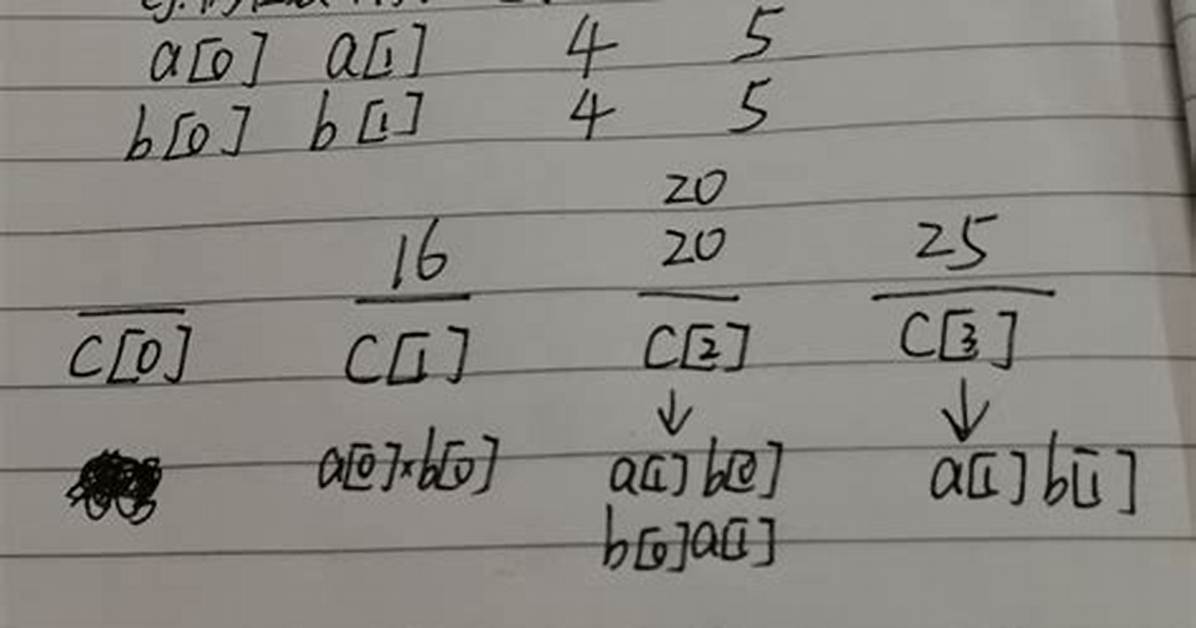 a[0] a[1] 4 5
b[0] b[1] 4 5
20
16 20 25
C[0] C[1] C[2] C[3]
↓ ↓
a[0]×b[0] a[1] b[0] a[1] b[1]
b[0]a[1]